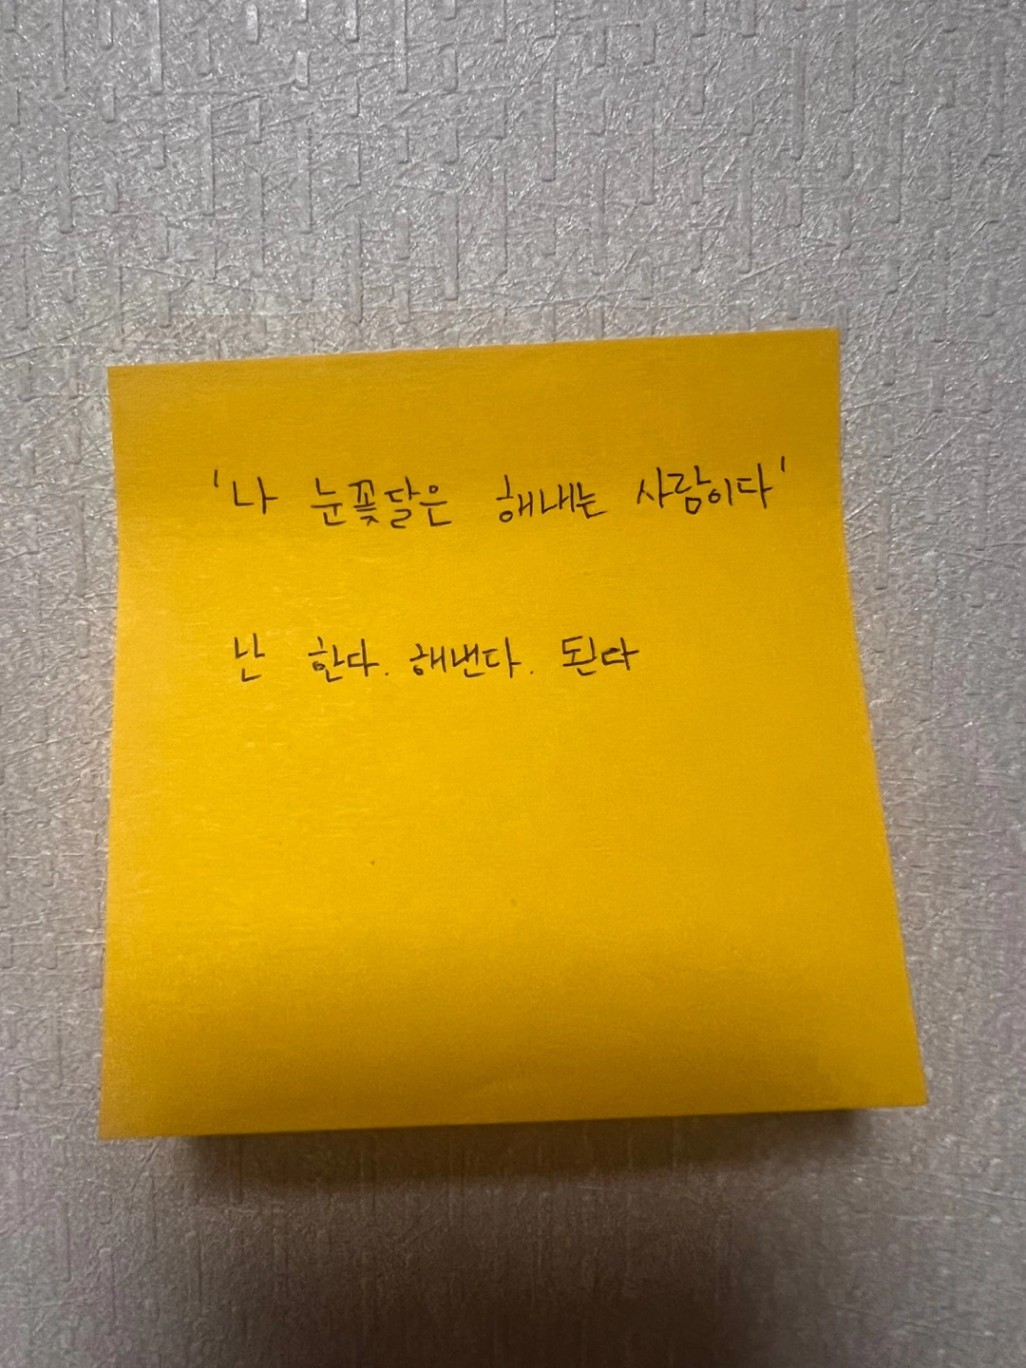 '나 눈꽃달은 해내는 사람이다'
난 한다. 해낸다. 된다